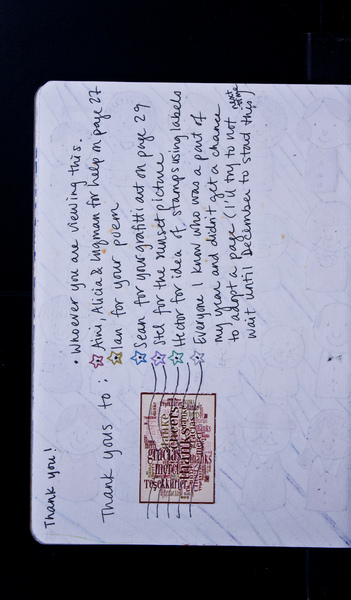 Thank you!
Thank yous to:
• Whoever you are viewing this.
Aini, Alicia & Luqman for help on page 27
Ian for your poem
Sean for your grafitti art on page 29
Stef for the sunset picture
Hector for idea of stamps using labels
Everyone I know who was a part of
my year and didn't get a chance
to adopt a page (I'll try to not
wait until December to start this next time)
cheers
gracias
merci
thanks
Teşekkürler